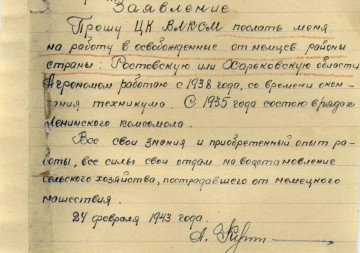 Заявление
Прошу ЦК ВЛКСМ послать меня
на работу в освобожденные от немцев районы
страны: Ростовскую или Харьковскую области
Агрономом работаю с 1938 года, со времени окон-
чания техникума. С 1935 года состою в рядах
Ленинского комсомола.
Все свои знания и приобретенный опыт ра-
боты, все силы свои отдам на водстановление
сельского хозяйства, пострадавшего от немецкого
нашествия.
24 февраля 1943 года.
А.